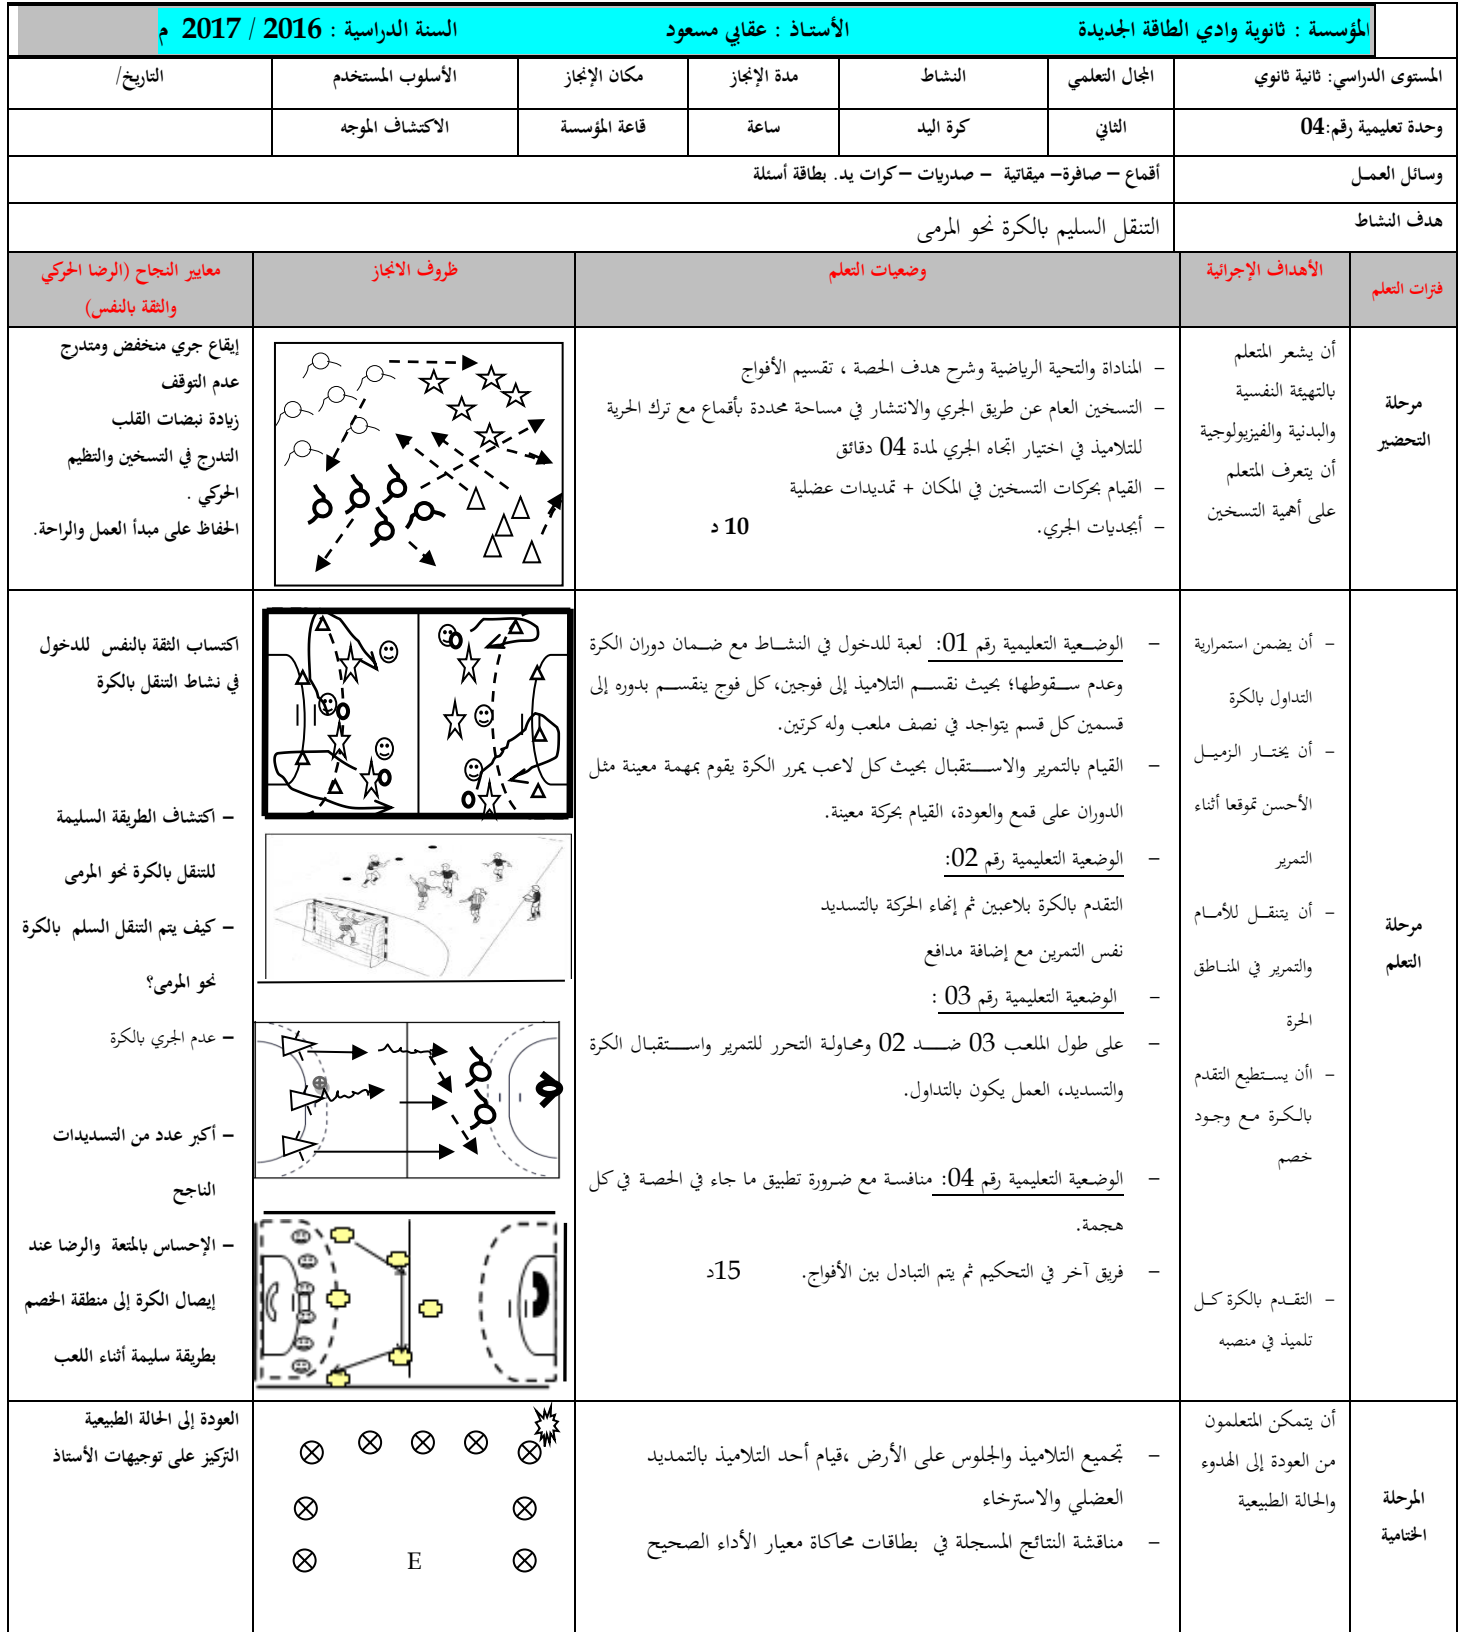 المؤسسة : ثانوية وادي الطاقة الجديدة الأستاذ : عقابي مسعود السنة الدراسية : 2016 / 2017 م
المستوى الدراسي: ثانية ثانوي المجال التعلمي النشاط مدة الإنجاز مكان الإنجاز الأسلوب المستخدم التاريخ/
وحدة تعليمية رقم:04 الثاني كرة اليد ساعة قاعة المؤسسة الاكتشاف الموجه
وسائل العمل أقماع – صافرة– ميقاتية – صدريات –كرات يد. بطاقة أسئلة
هدف النشاط التنقل السليم بالكرة نحو المرمى
فترات التعلم الأهداف الإجرائية وضعيات التعلم ظروف الانجاز معايير النجاح (الرضا الحركي
والثقة بالنفس)
مرحلة
التحضير
أن يشعر المتعلم
بالتهيئة النفسية
والبدنية والفيزيولوجية
أن يتعرف المتعلم
على أهمية التسخين
– المناداة والتحية الرياضية وشرح هدف الحصة ، تقسيم الأفواج
– التسخين العام عن طريق الجري والانتشار في مساحة محددة بأقماع مع ترك الحرية
للتلاميذ في اختيار اتجاه الجري لمدة 04 دقائق
– القيام بحركات التسخين في المكان + تمديدات عضلية
– أبجديات الجري. 10 د
إيقاع جري منخفض ومتدرج
عدم التوقف
زيادة نبضات القلب
التدرج في التسخين والتظيم
الحركي .
الحفاظ على مبدأ العمل والراحة.
مرحلة
التعلم
– أن يضمن استمرارية
التداول بالكرة
– أن يختار الزميل
الأحسن تموقعا أثناء
التمرير
– أن يتنقل للأمام
والتمرير في المناطق
الحرة
– أأن يستطيع التقدم
بالكرة مع وجود
خصم
– التقدم بالكرة كل
تلميذ في منصبه
– الوضعية التعليمية رقم 01: لعبة للدخول في النشاط مع ضمان دوران الكرة
وعدم سقوطها؛ بحيث نقسم التلاميذ إلى فوجين، كل فوج ينقسم بدوره إلى
قسمين كل قسم يتواجد في نصف ملعب وله كرتين.
– القيام بالتمرير والاستقبال بحيث كل لاعب يمرر الكرة يقوم بمهمة معينة مثل
الدوران على قمع والعودة، القيام بحركة معينة.
– الوضعية التعليمية رقم 02:
التقدم بالكرة بلاعبين ثم إنهاء الحركة بالتسديد
نفس التمرين مع إضافة مدافع
– الوضعية التعليمية رقم 03 :
– على طول الملعب 03 ضد 02 ومحاولة التحرر للتمرير واستقبال الكرة
والتسديد، العمل يكون بالتداول.
– الوضعية التعليمية رقم 04: منافسة مع ضرورة تطبيق ما جاء في الحصة في كل
هجمة.
– فريق آخر في التحكيم ثم يتم التبادل بين الأفواج. 15د
اكتساب الثقة بالنفس للدخول
في نشاط التنقل بالكرة
– اكتشاف الطريقة السليمة
للتنقل بالكرة نحو المرمى
– كيف يتم التنقل السلم بالكرة
نحو المرمى؟
– عدم الجري بالكرة
– أكبر عدد من التسديدات
الناجح
– الإحساس بالمتعة والرضا عند
إيصال الكرة إلى منطقة الخصم
بطريقة سليمة أثناء اللعب
المرحلة
الختامية
أن يتمكن المتعلمون
من العودة إلى الهدوء
والحالة الطبيعية
– تجميع التلاميذ والجلوس على الأرض ،قيام أحد التلاميذ بالتمديد
العضلي والاسترخاء
– مناقشة النتائج المسجلة في بطاقات محاكاة معيار الأداء الصحيح
E
العودة إلى الحالة الطبيعية
التركيز على توجيهات الأستاذ